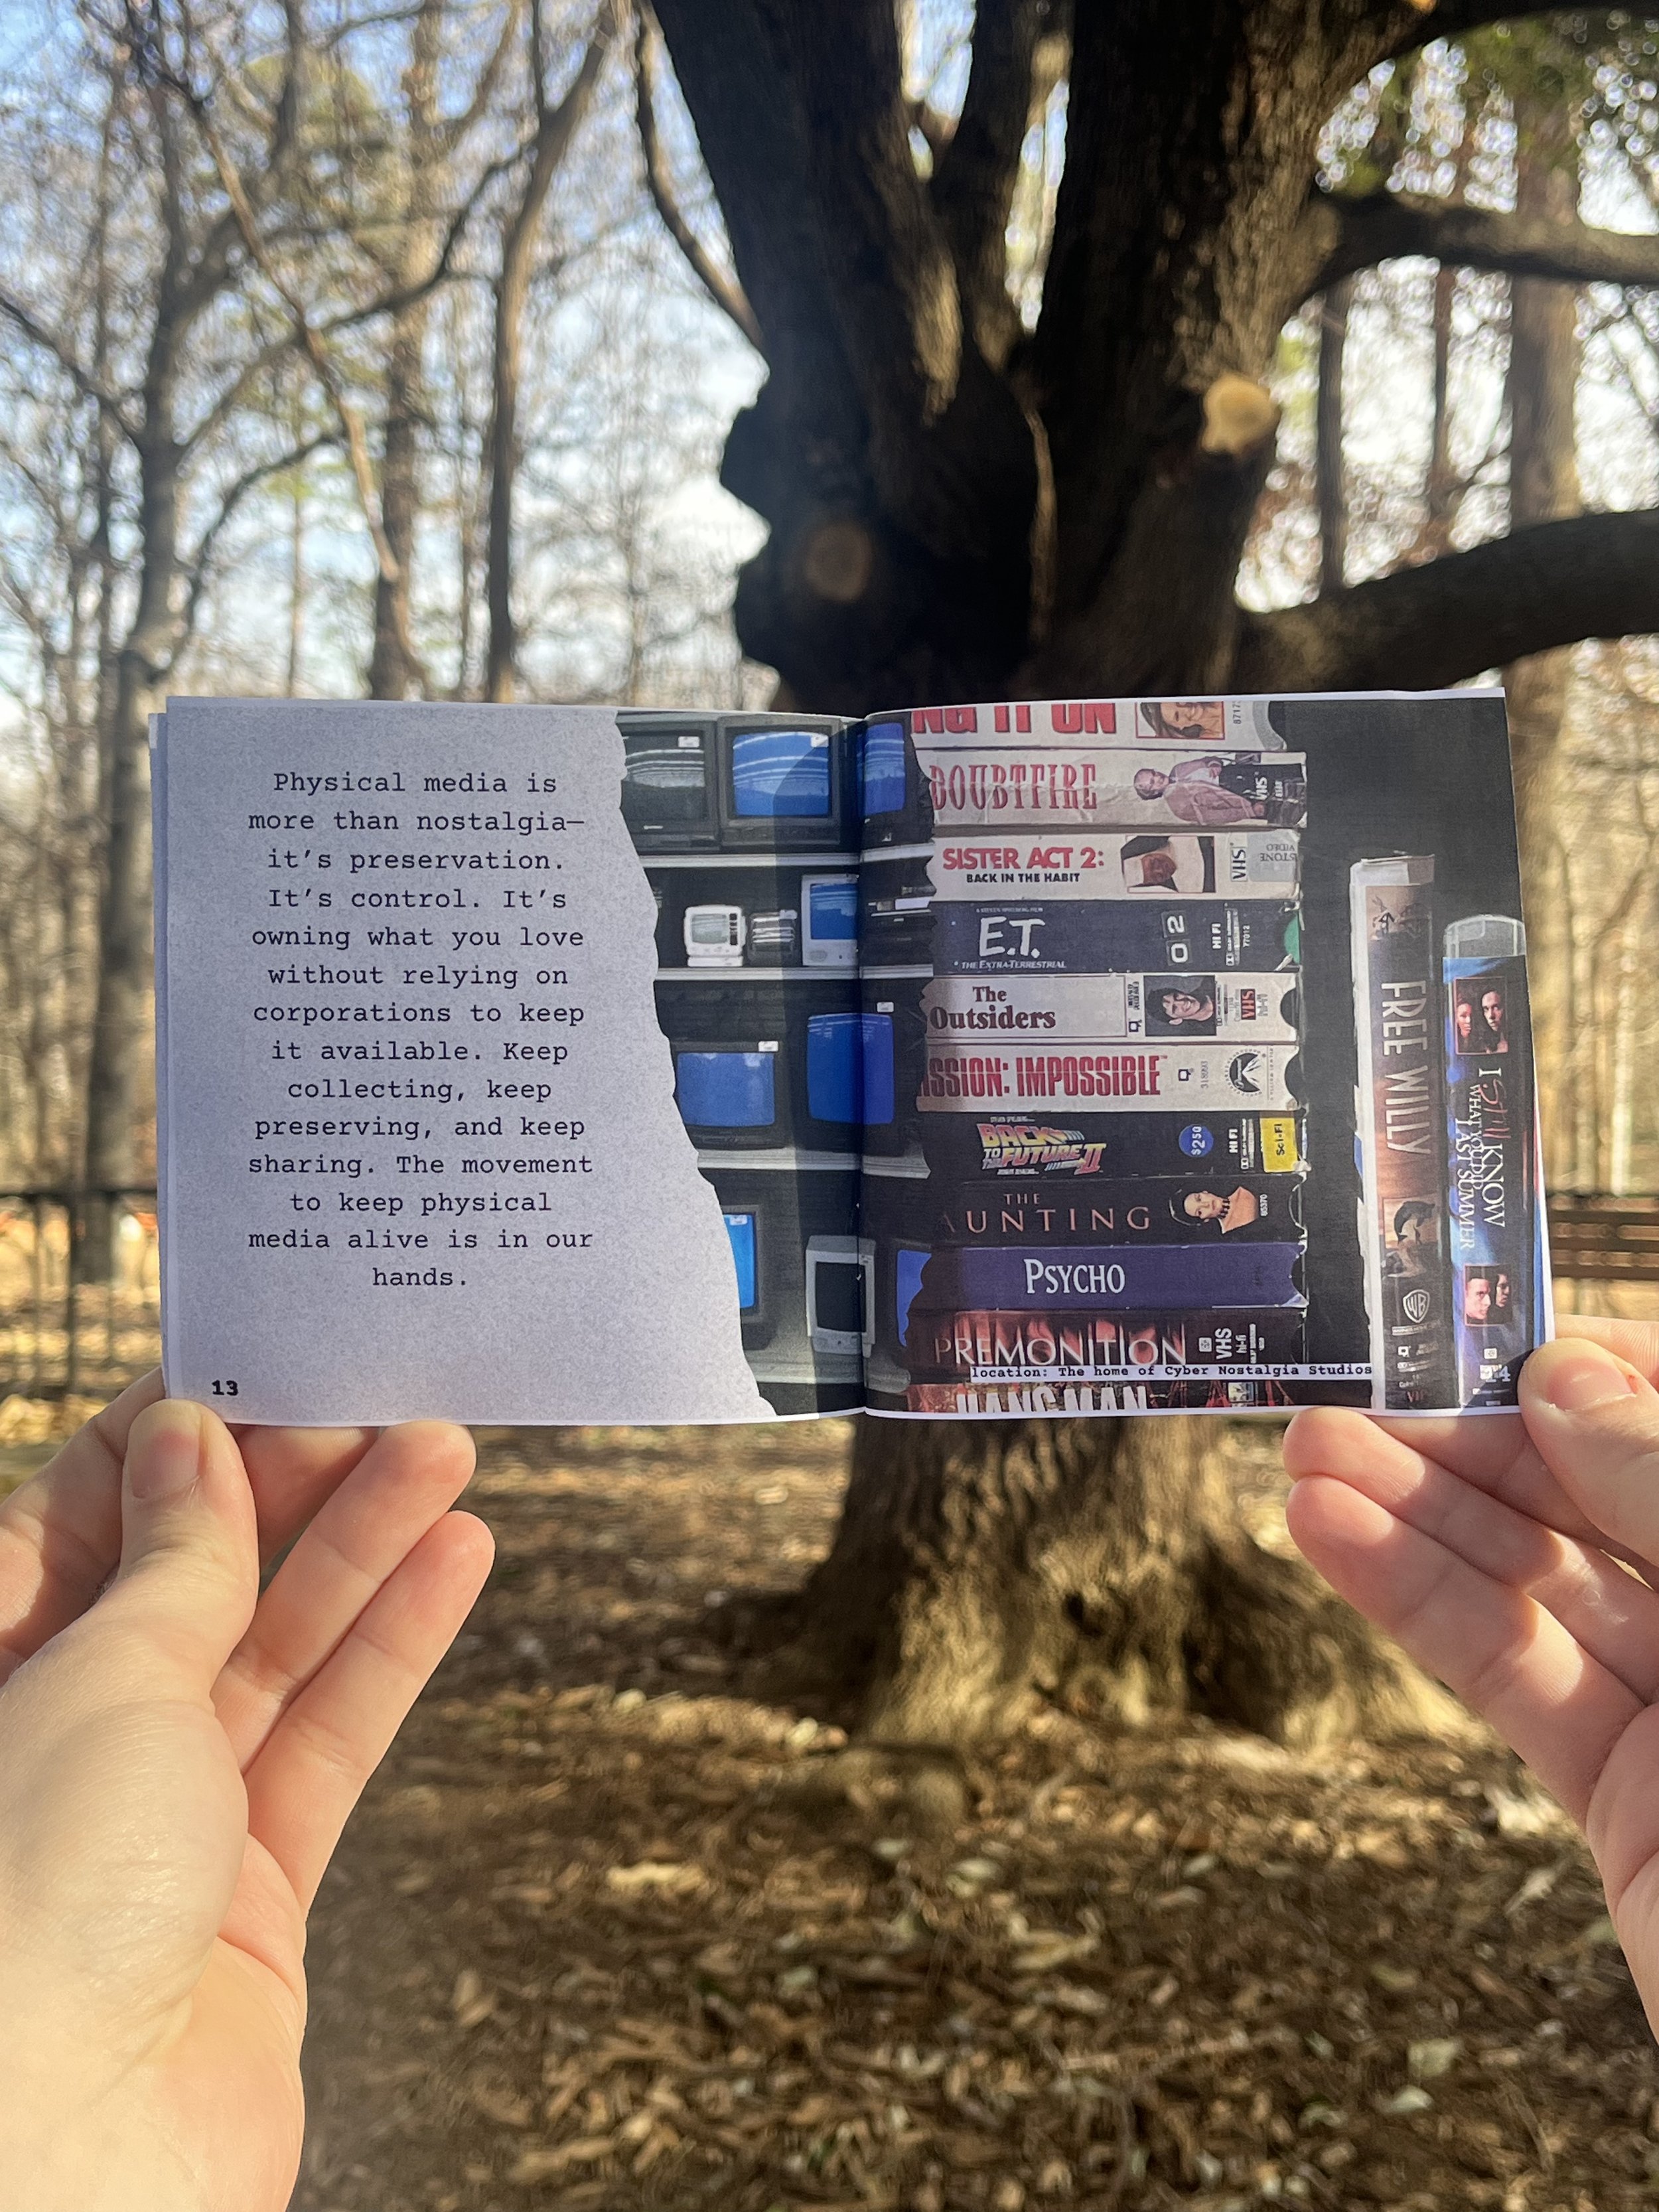 Physical media is
more than nostalgia—
it's preservation.
It's control. It's
owning what you love
without relying on
corporations to keep
it available. Keep
collecting, keep
preserving, and keep
sharing. The movement
to keep physical
media alive is in our
hands.
13
NG IT ON
DOUBTFIRE
VHS
SISTER ACT 2:
BACK IN THE HABIT
VHS
E.T.
THE EXTRA-TERRESTRIAL
02
HI FI
77012
The
Outsiders
VHS
ISSION: IMPOSSIBLE
BACK
TO THE
FUTURE II
$2.50
HI FI
Sci-Fi
THE
AUNTING
PSYCHO
PREMONITION
VHS
hi-fi
location: The home of Cyber Nostalgia Studios
HANGMAN
FREE WILLY
WB
I STILL KNOW
WHAT YOU DID
LAST SUMMER
14